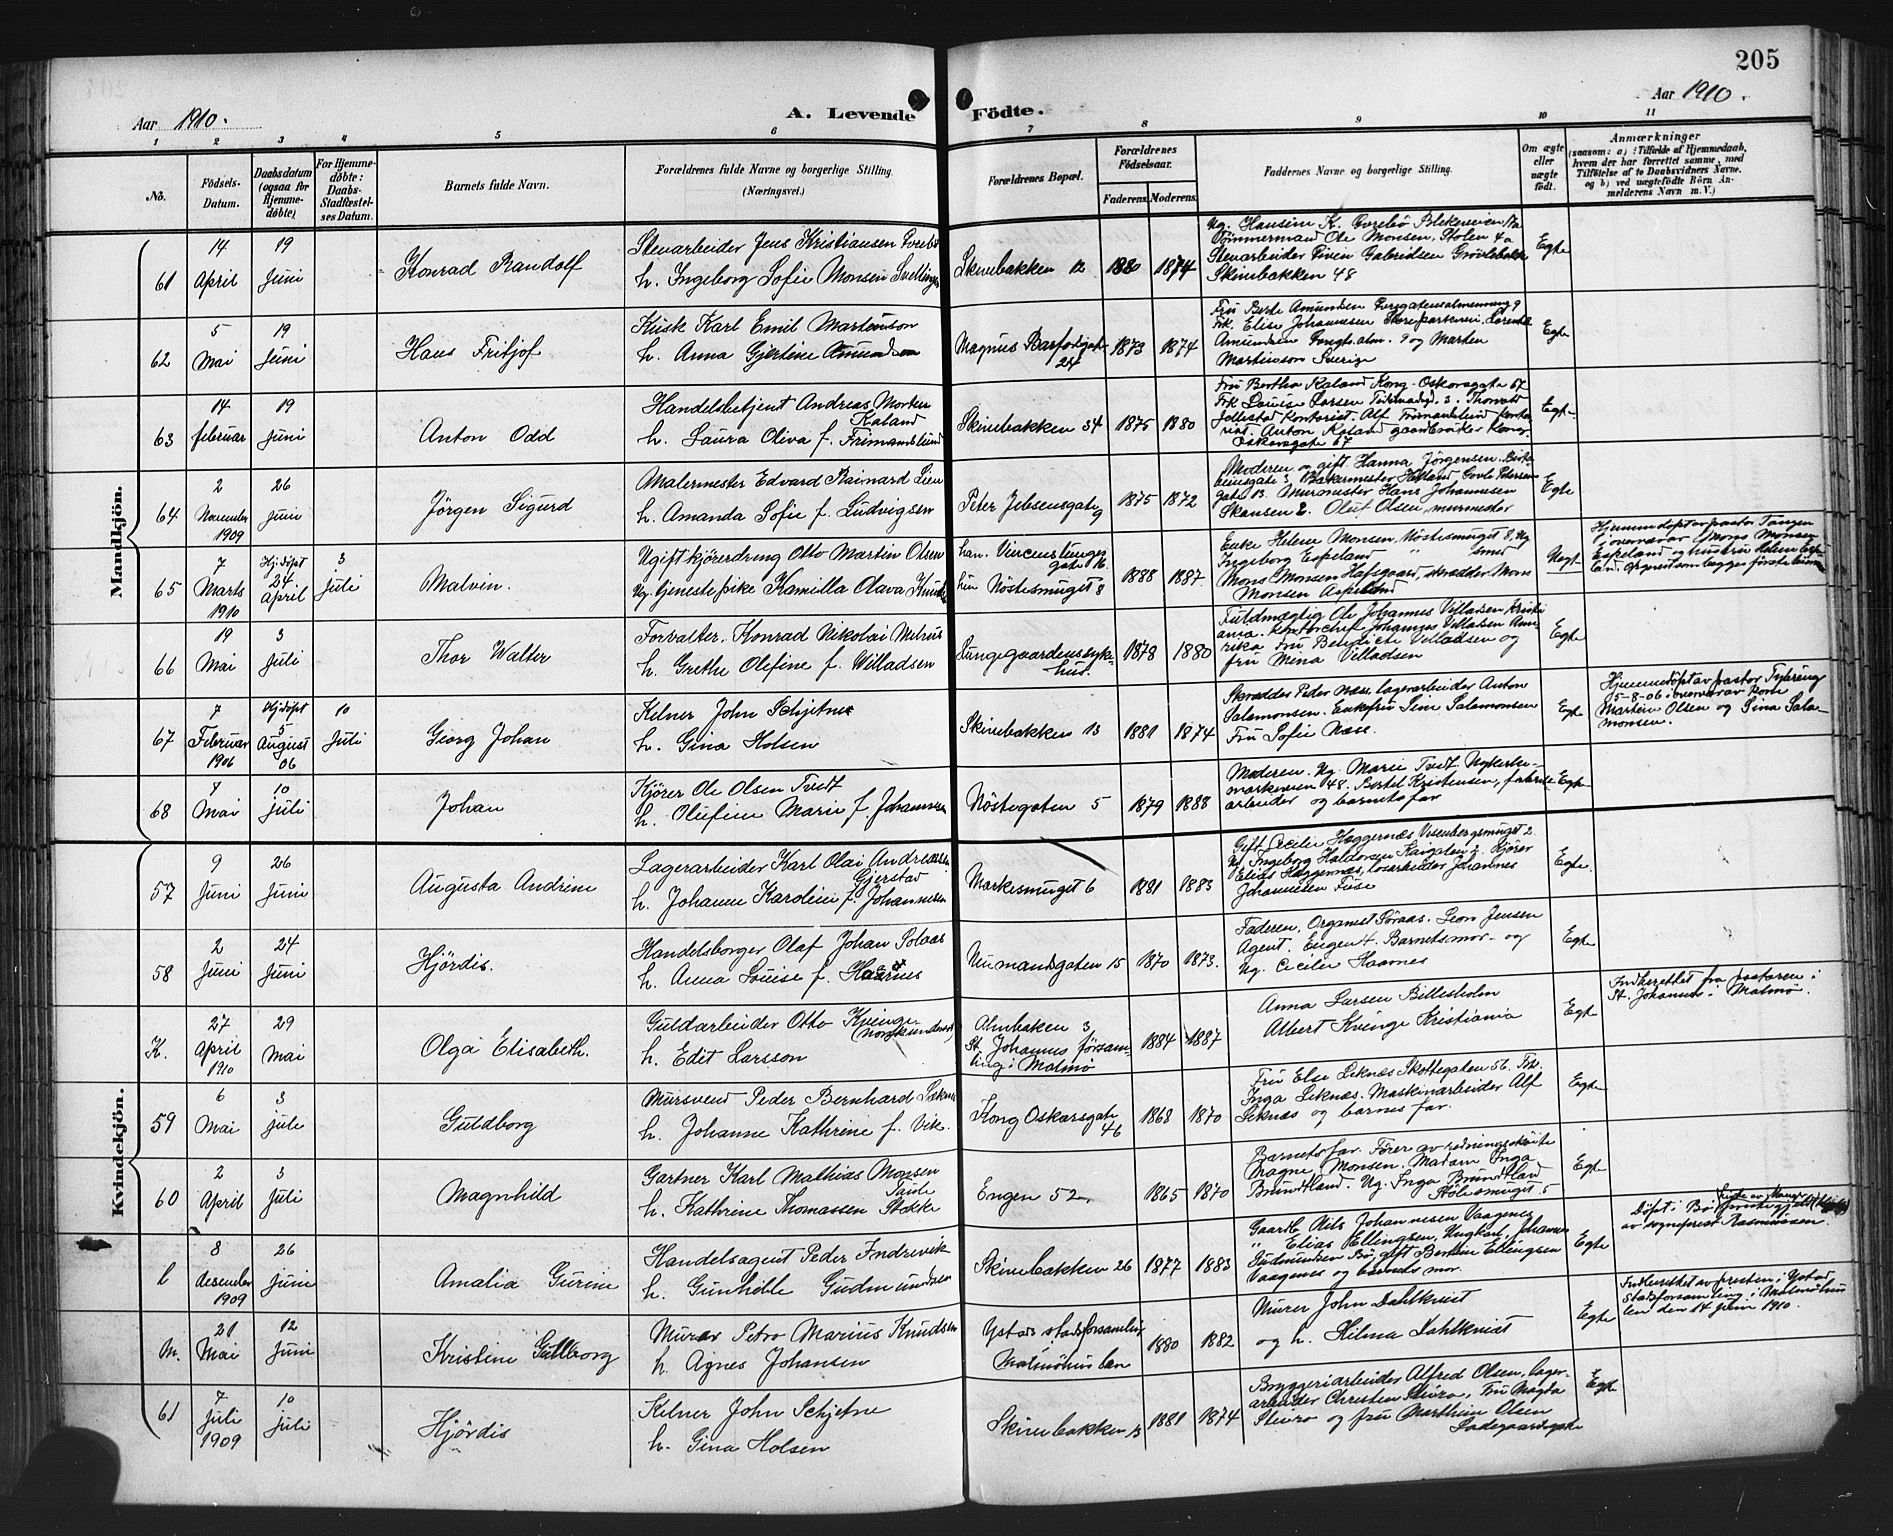 205
Aar 1910.
A. Levende Födte.
Aar 1910.
1 2 3 4 5 6 7 8 9 10 11
No.
Födsels-
Datum.
Daabsdatum
(ogsaa for
Hjemme-
døbte)
For Hjemme-
døbte:
Daabs-
Stadfæstel-
ses Datum.
Barnets fulde Navn.
Forældrenes fulde Navne og borgerlige Stilling.
(Næringsvei.)
Forældrenes Bopæl.
Forældrenes
Födselsaar.
Faderens. Moderens.
Faddernes Navne og borgerlige Stilling.
Om ægte
eller
uægte
födt.
Anmærkninger
(saasom: a) i Tilfælde af Hjemmedaab,
hvem der har forrettet samme, med
Tilföielse af to Daabsvidners Navne,
og b) ved uægtefödte Börn An-
melderens Navn m. V.)
Mandkjön.
61
14
April
19
Juni
Konrad Randolf
Stenarbeider Jens Kristiansen
h. Ingeborg Sofie Monsen
Skivebakken 12
1880 1874
Tømmermand Ole Monsen, Stølen 4a
Stenarbeider Gabrielsen
Skivebakken 48
Egte
62
5
Mai
19
Juni
Hans Fritjof
Kusk Karl Emil Martinson
h. Anna Gjertine Amundsen
Magnus Barfodsgate
24
1873 1874
Fru Berte Amundsen
Frk. Elise Johannesen
Amundsen og Marten
Martinson Sverige
Egte
63
14
februar
19
Juni
Anton Odd
Handelsbetjent Andreas Morten
Kaland
h. Laura Oliva f. Frimanslund
Skivebakken 34
1875 1880
Fru Bertha Kaland Kong Oskarsgate 67
Frk Louise Larsen
Jellestad kontorist. Alf Frimanslund
Anton Kaland
Oskarsgate 67
Egte
64
2
November
1909
26
Juni
Jörgen Sigurd
Malermester Edvard Rainard Lien
h. Amanda Sofie f. Ludvigsen
Peter Jebsensgate 9
1875 1872
Moderen og gift Hanna Jørgensen.
gate 13. Murmester Hans Johannesen
Skansen 2. Oluf Olsen, murmester
Egte
65
7
Marts
1910
Hj.døpt
24
April
3
Juli
Malvin.
Ugift kjøredreng Otto Martin Olsen
Ug. tjenestepike Kamilla Olava
han. Vincenslunges
gate 16
hun Nöstesmuget 8
1888 1887
Enke Helene Monsen, Nöstesmuget 8. Ug
Ingeborg Espeland
Mons Monsen skrædder Mons
Monsen
Uegt
Hjemmedøpt av pastor Tangen
i overvær av Mons Monsen
Espeland og hustru Helene
66
19
Mai
3
Juli
Thor Walter
Forvalter. Konrad Nikolai
h. Grethe Olefine f. Willadsen
Lungegaardenssyke-
hus.
1878 1880
Fuldmægtig Ole Johannes Villadsen Kristi
ania. Kontorchef Johannes Villadsen Ame
rika Fru Bendicte Villadsen og
fru Mina Villadsen
Egte
67
7
Februar
1906
Hj.døpt
5
August
06
10
Juli
Georg Johan
Kelner John Schjetne
h. Gina Holsen
Skivebakken 13
1881 1874
Skrædder Peder Næss, lagerarbeider Anton
Salamonsen. Enkefru Sine Salamonsen
Fru Sofie Næss.
Egte
Hjemmedøpt av pastor
5-8-06 i overvær av
Martin Olsen og Gina Sala-
monsen.
68
7
Mai
10
Juli
Johan
Kjører Ole Olsen Tvedt
h. Olufine Marie f. Johannesen
Nöstegaten 5
1879 1888
Moderen. Ug. Marie Tvedt Nykirke-
48. Bertel Kristensen, fabrik-
arbeider og barnets far
Egte
Kvindekjön.
57
9
Juni
26
Juni
Augusta Andrine
Lagerarbeider Karl Olai Andreassen
Gjerstad
h. Johanne Karoline f. Johannesen
Markesmuget 6
1881 1883
Gift Cecilie Heggernæs Vesenbergsmuget 2
Ug Ingeborg Haldorsen Kaigaten 2. Kjører
Elias Heggernæs, losarbeider Johannes
Johannesen Fuse
Egte
58
2
Juni
24
Juni
Hjördis.
Handelsborger Olaf Johan Soraas
h. Anna Louise f.
Neumandsgaten 15
1870 1873.
Faderen, Organist Søraas. Leon Jensen
Agent. Engen 4. Barnets mor og
Ug. Cecilie
Egte
K.
27
April
1910
29
Mai
Olga Elisabeth.
Guldarbeider Otto Kvinge
h. Edit Larsson
Almbakken 3
St. Johannes försam-
ling i Malmö
1884 1887
Anna Larsen Billesholm
Albert Kvinge Kristiania
Egte
Indberettet fra pastoren i
St. Johannes i Malmö.
59
6
Mai
3
juli
Guldborg
Mursvend Peder Bernhard Leknes
h. Johanne Kathrine f. Vik.
Kong Oskarsgate
46
1868 1870
Fru Else Leknæs Skottegaten 56. Frk.
Inga Leknæs. Maskinarbeider Alf
Leknæs og barnes far.
Egte
60
2
April
3
Juli
Magnhild
Gartner Karl Mathias Monsen
h. Kathrine Thomassen Stokke
Engen 52
1865 1870
Barnets far. Fører av redningsskøite
Magne Monsen. Madam Inga
Brundtland. Ug. Inga Brundtland
Stølesmuget 5
Egte
L
8
desember
1909
26
Juni
Amalia Gurine
Handelsagent Peder Indrevik
h. Gunhilde Gudmundsen
Skivebakken 26
1877 1883
Gaardb. Nils Johannesen Vaagenes
" Elias Ellingsen, Ungkarl Johannes
Gudmundsen Bö, gift Berthine Ellingsen
Vaagenes og barnets mor.
Egte
Døpt i Bø
av sogneprest Rasmussen.
M.
21
Mai
12
Juni
Kristine Gullborg
Murer Petro Marius Knudsen
h. Agnes Johansen
Ystads stadsforsamling
Malmöhus län
1880 1882
Murer John Dahlkvist
og h. Hilma Dahlkvist
Egte
Indberettet av presten i Ystad
Stadsforsamling i Malmöhus
len den 14 juni 1910.
61
7
Juli
1909
10
juli
Hjördis
Kelner John Schjetne
h. Gina Holsen
Skivebakken 13
1881 1874
Bryggeriarbeider Alfred Olsen, lager-
arbeider Christen Sture, Fru Magda
Sture og fru Marthine Olsen
Ladegaardsgate
Egte